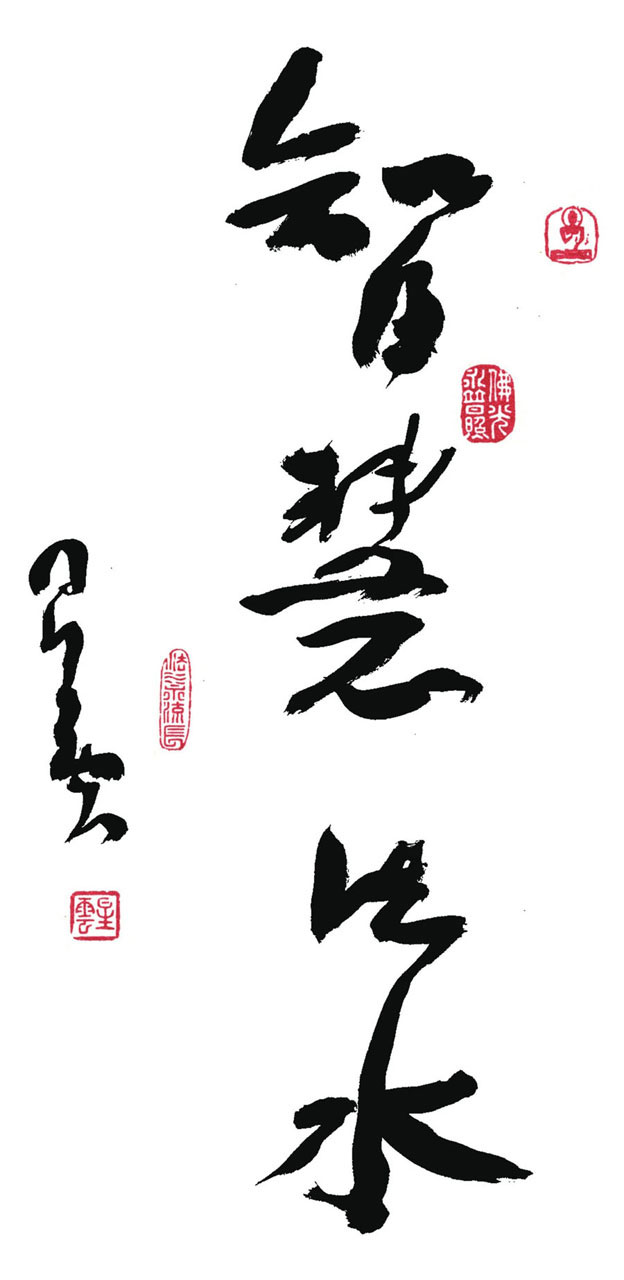 智慧法水
星雲
佛光
普照
法水流長
星雲